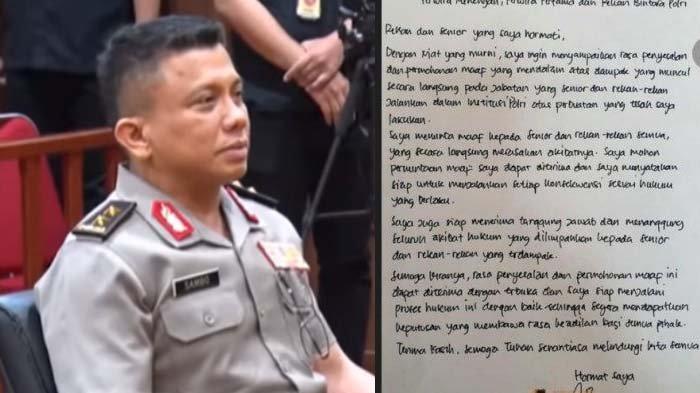 SAMBO
Perwira Menengah, Perwira Pertama dan Rekan Bintara Polri
Rekan dan senior yang saya hormati,
Dengan niat yang murni, saya ingin menyampaikan rasa penyesalan
dan permohonan maaf yang mendalam atas dampak yang muncul
secara langsung pada jabatan yang senior dan rekan-rekan
jalankan dalam institusi Polri atas perbuatan yang telah saya
lakukan.
Saya meminta maaf kepada senior dan rekan-rekan semua,
yang secara langsung merasakan akibatnya. Saya mohon
permintaan maaf saya dapat diterima dan saya menyatakan
siap untuk menjalankan setiap konsekuensi sesuai hukum
yang berlaku.
Saya juga siap menerima tanggung jawab dan menanggung
seluruh akibat hukum yang dilimpahkan kepada senior
dan rekan-rekan yang terdampak.
Semoga kiranya, rasa penyesalan dan permohonan maaf ini
dapat diterima dengan terbuka dan saya siap menjalani
proses hukum ini dengan baik sehingga segera mendapatkan
keputusan yang membawa rasa keadilan bagi semua pihak.
Terima kasih, semoga Tuhan senantiasa melindungi kita semua
Hormat saya